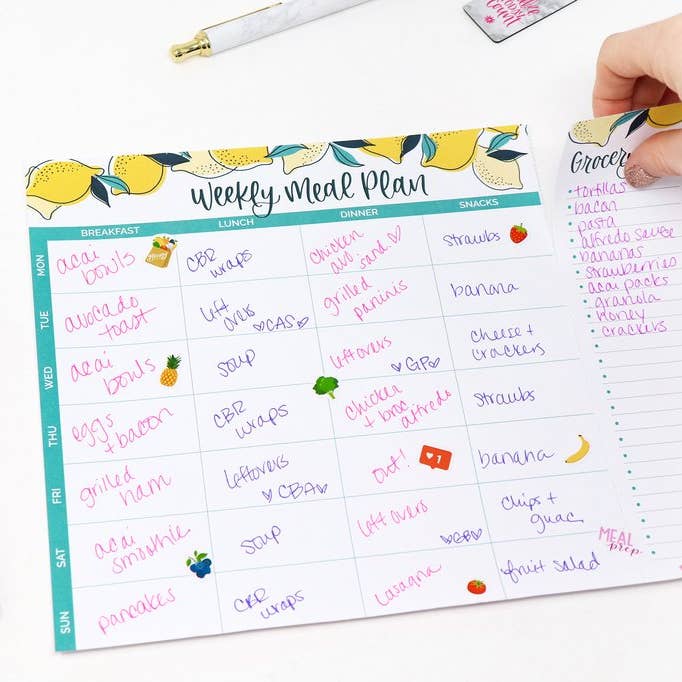 make
today
Count
Weekly Meal Plan
BREAKFAST LUNCH DINNER SNACKS
MON
acai
bowls
CBR
wraps
chicken
avo sand ♡
strawbs
TUE
avocado
toast
left
overs
♡CAS♡
grilled
paninis
banana
WED
acai
bowls
soup
leftovers
♡GP♡
cheese +
crackers
THU
eggs
+ bacon
CBR
wraps
chicken
+ broc
alfredo
strawbs
FRI
grilled
ham
leftovers
♡CBA♡
out!
1
banana
SAT
acai
smoothie
soup
left overs
chips +
guac
SUN
pancakes
CBR
wraps
lasagna
fruit salad
Grocery
tortillas
bacon
pasta
alfredo sauce
bananas
strawberries
acai packs
granola
honey
crackers
MEAL
prep